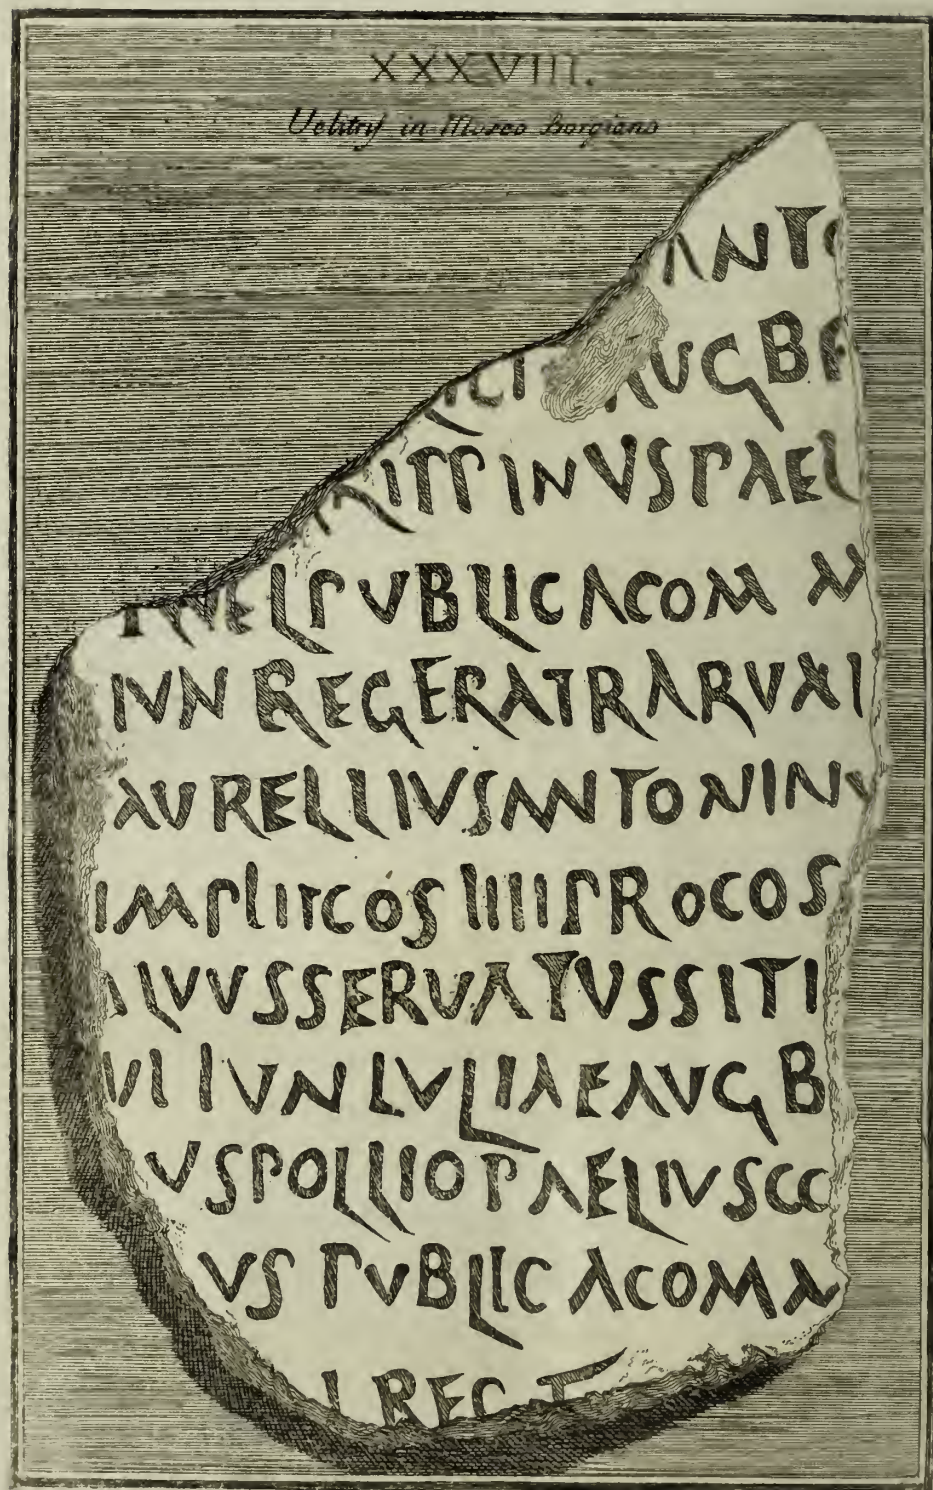 XXXVIII.
Uelitrif in Museo Borgiano
ANTO
AUG B
IPPINUSPAEL
PUBLICACOM
IVN REGERATRARUXI
AURELLIVSANTONINV
IMPLIITCOS IIIIPROCOS
ALVVSSERVATVSSITI
VI IVNLVLIAEAVG B
VSPOLLIOPAELIVSCC
VS PVBLICACOMA
REG